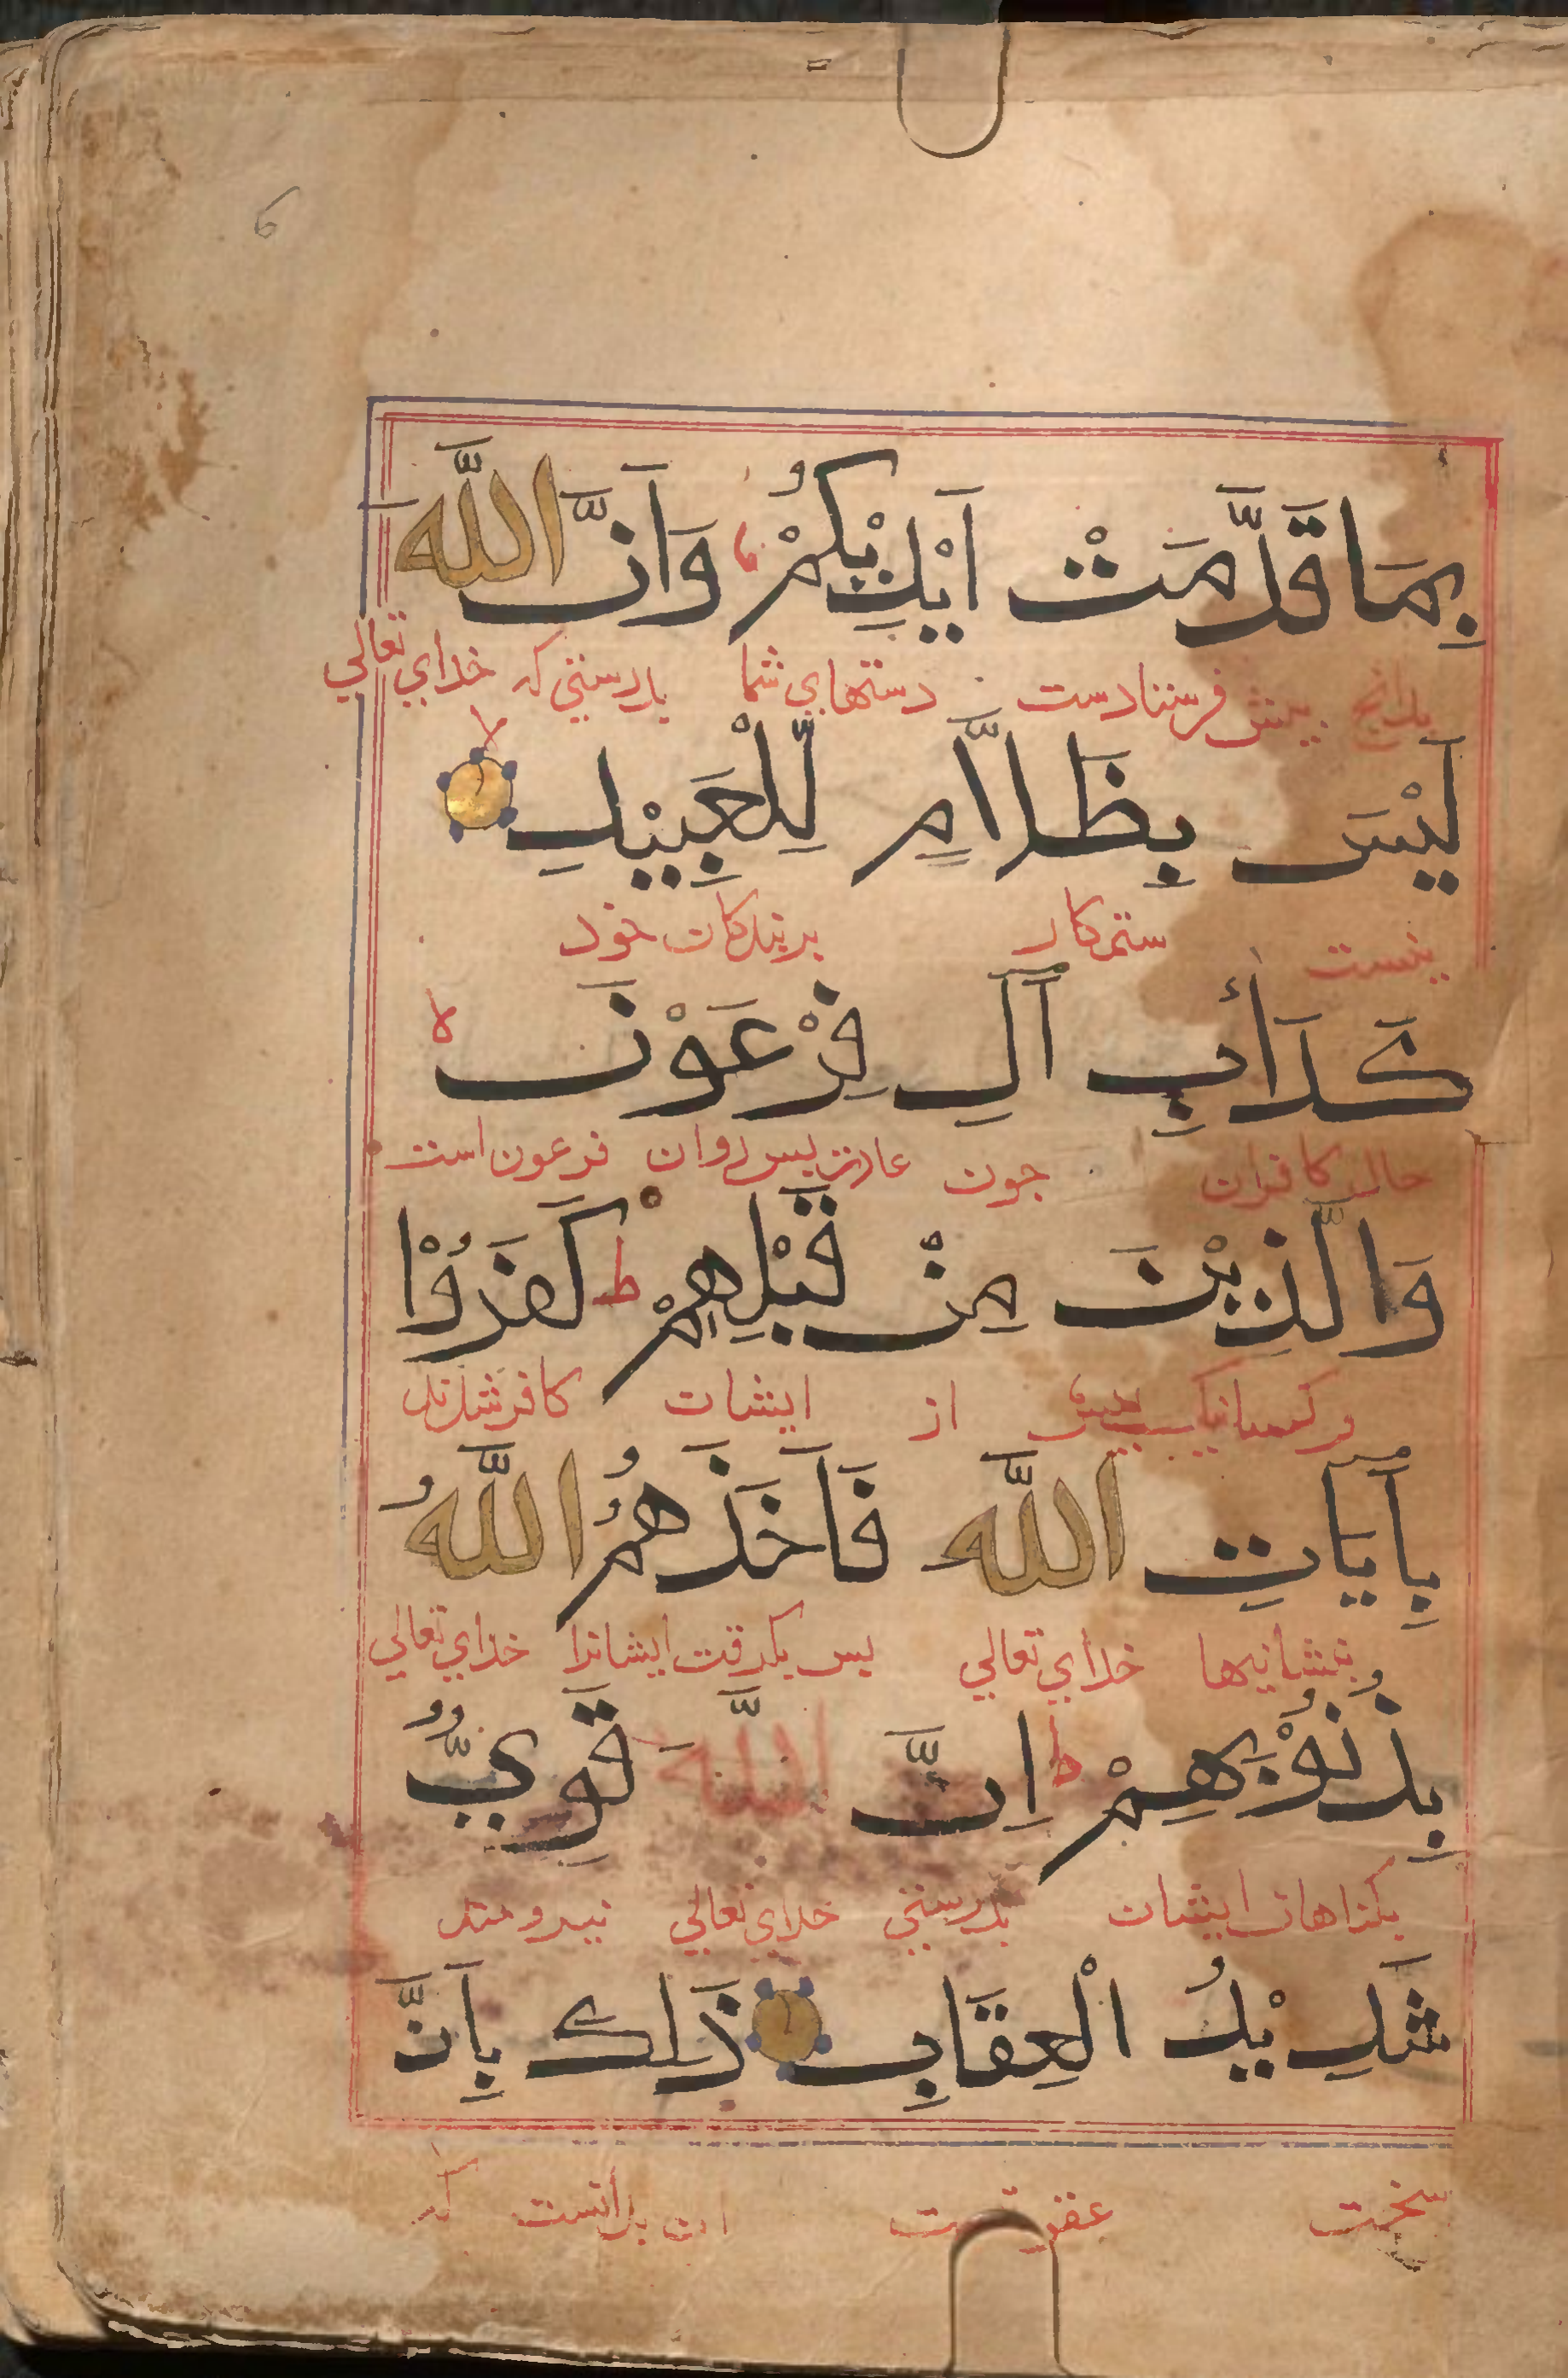 ۶
بِمَا قَدَّمَتْ اَيْدِيْكُمْ وَاَنَّ اللَّهَ
بدانچ پیش فرستادست دستهای شما بدرستی که خدای تعالی
لَيْسَ بِظَلَّامٍ لِّلْعَبِيْدِ لا
نیست ستمکار بربندکان خود
كَدَأْبِ آلِ فِرْعَوْنَ لا
حال کافران جون عادت بس روان فرعون است
وَالَّذِيْنَ مِنْ قَبْلِهِمْ ط كَفَرُوْا
وکسانیکه پیش از ایشان کافر شدند
بِآيَاتِ اللَّهِ فَاَخَذَهُمُ اللَّهُ
بنشانیها خدای تعالی بس بکرفت ایشانرا خدای تعالی
بِذُنُوْبِهِمْ ط اِنَّ اللَّهَ قَوِيٌّ
بکناهان ایشان بدرستی خدای تعالی نیرومند
شَدِيْدُ الْعِقَابِ ذَلِكَ بِاَنَّ
سخت عقوبت این بدانست که